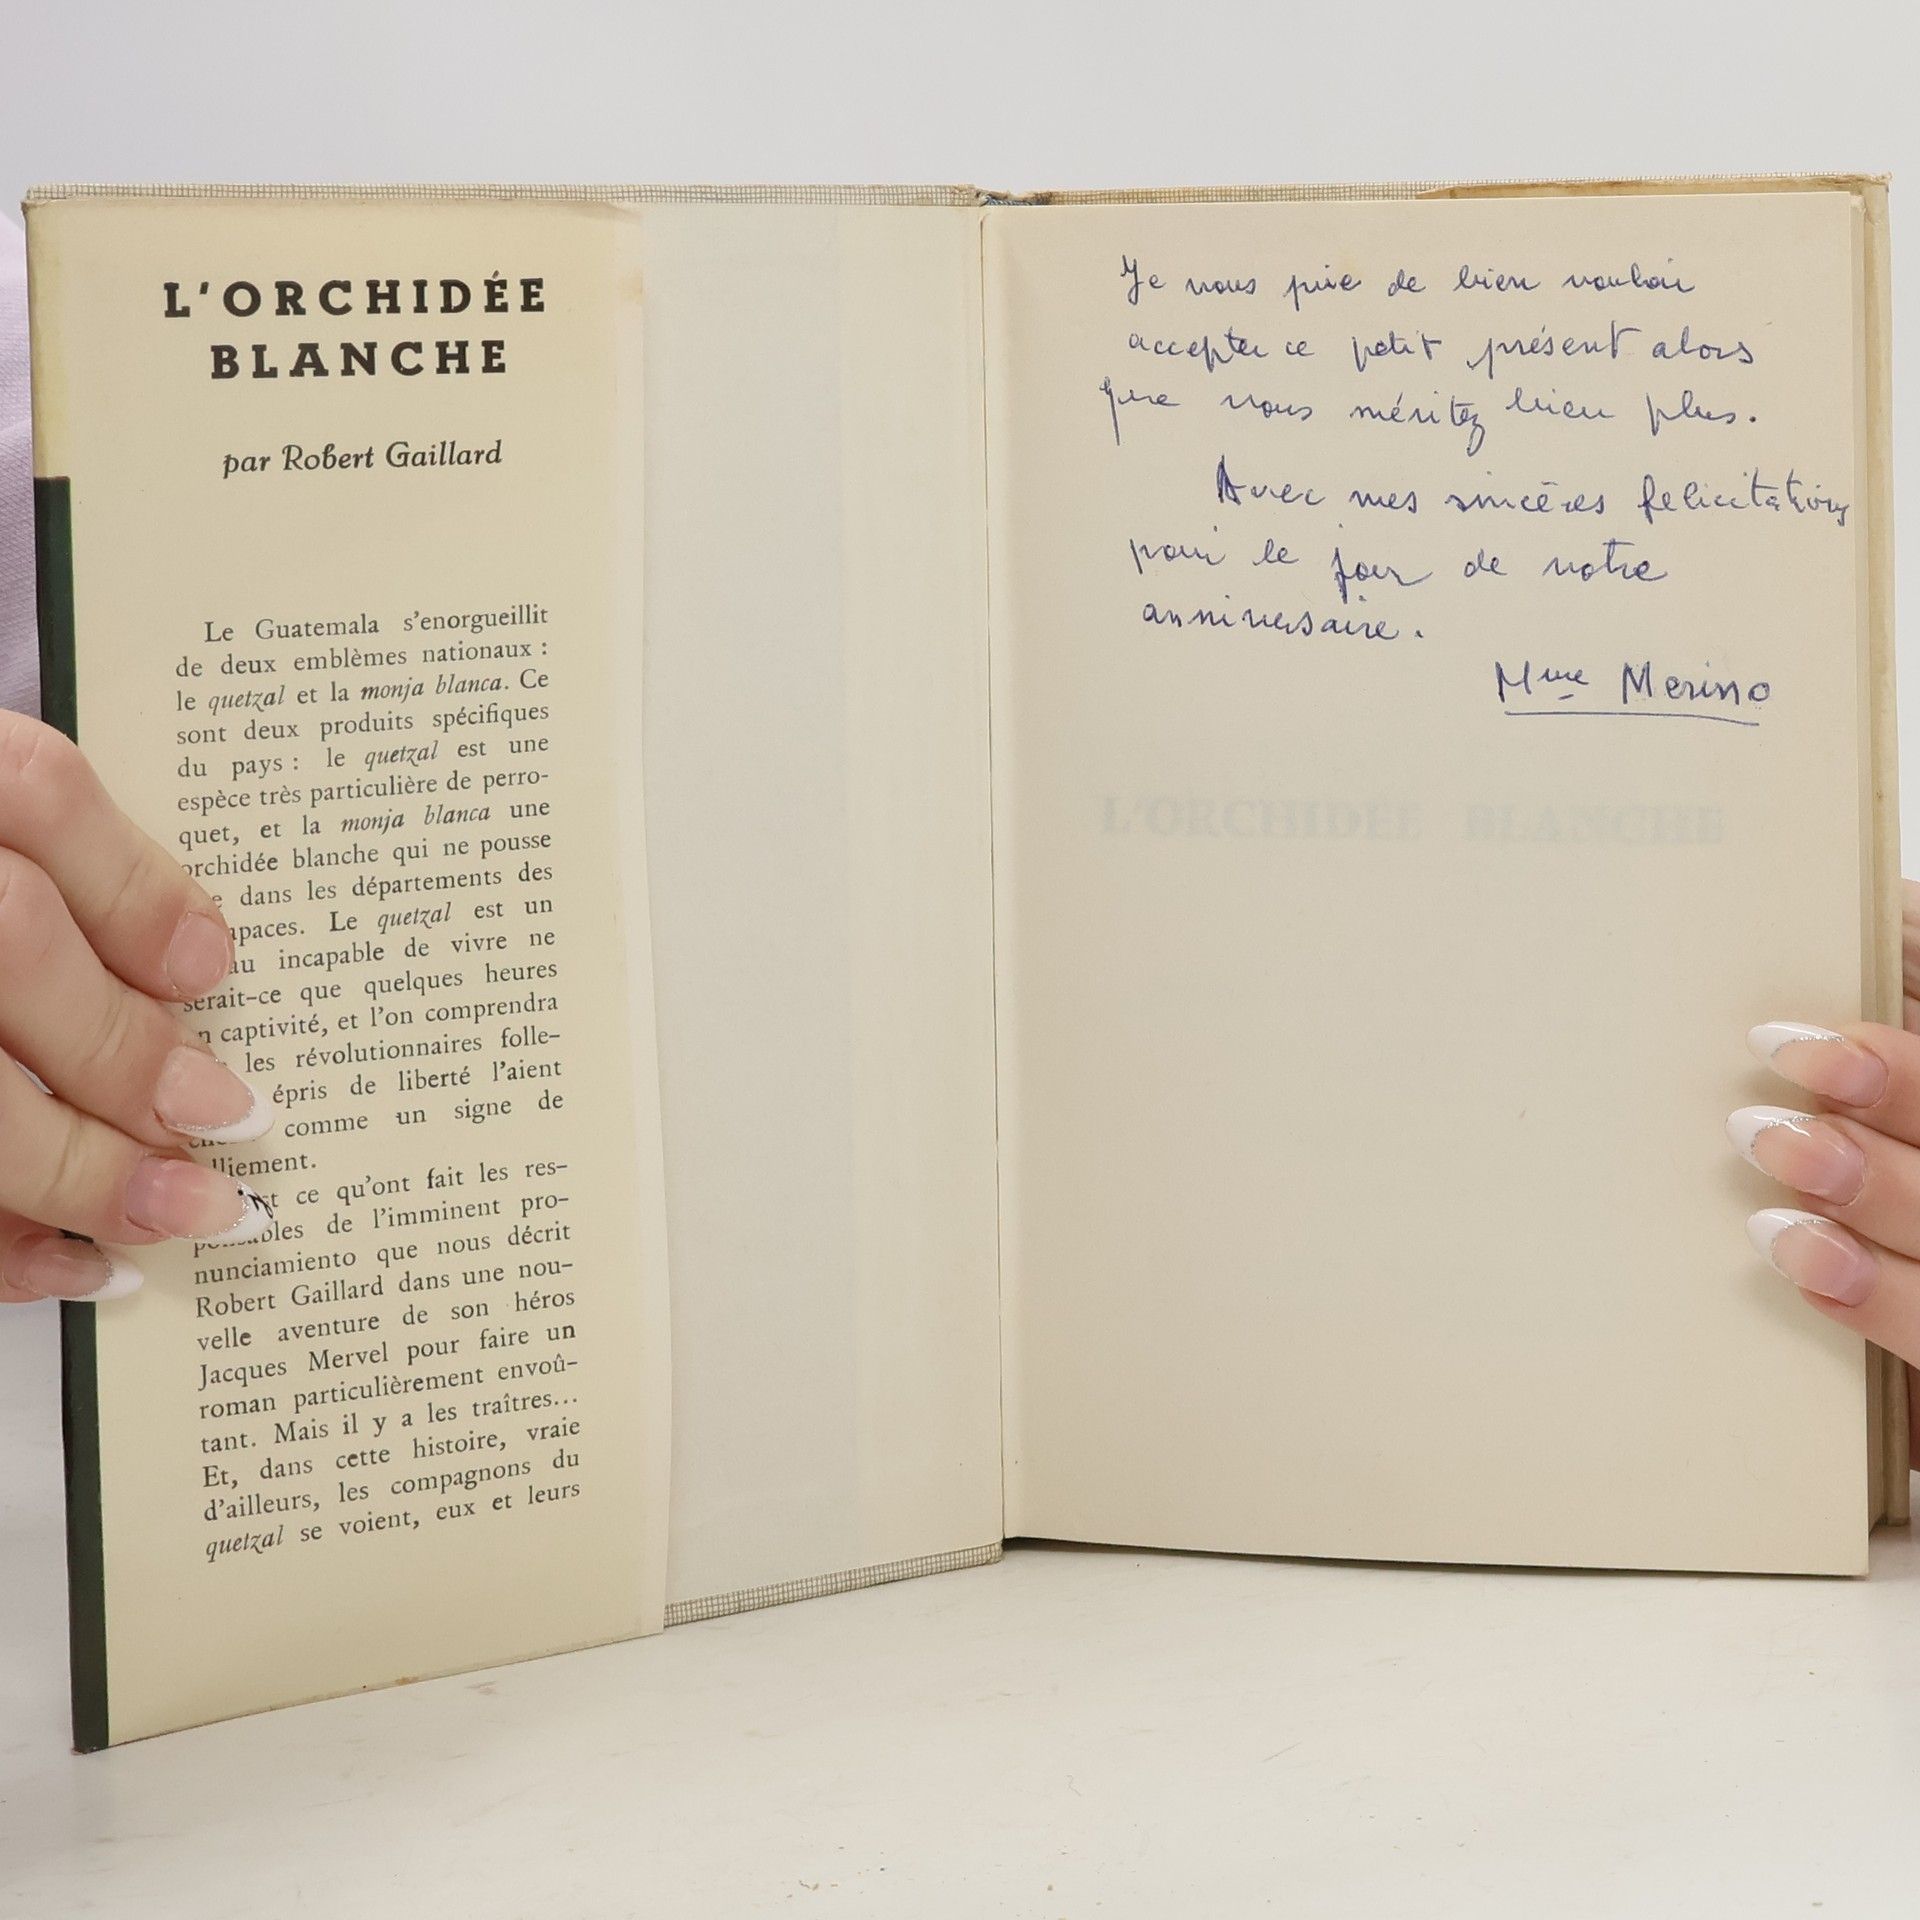 L'ORCHIDÉE
BLANCHE
par Robert Gaillard
Le Guatemala s'enorgueillit
de deux emblèmes nationaux :
le quetzal et la monja blanca. Ce
sont deux produits spécifiques
du pays : le quetzal est une
espèce très particulière de perro-
quet, et la monja blanca une
orchidée blanche qui ne pousse
dans les départements des
apaces. Le quetzal est un
au incapable de vivre ne
serait-ce que quelques heures
n captivité, et l'on comprendra
les révolutionnaires folle-
épris de liberté l'aient
comme un signe de
lliement.
st ce qu'ont fait les res-
ponsables de l'imminent pro-
nunciamiento que nous décrit
Robert Gaillard dans une nou-
velle aventure de son héros
Jacques Mervel pour faire un
roman particulièrement envoû-
tant. Mais il y a les traîtres...
Et, dans cette histoire, vraie
d'ailleurs, les compagnons du
quetzal se voient, eux et leurs
Je vous prie de bien vouloir
accepter ce petit présent alors
que vous méritez bien plus.
Avec mes sincères felicitations
pour le jour de votre
anniversaire.
Mme Merino
L'ORCHIDÉE BLANCHE